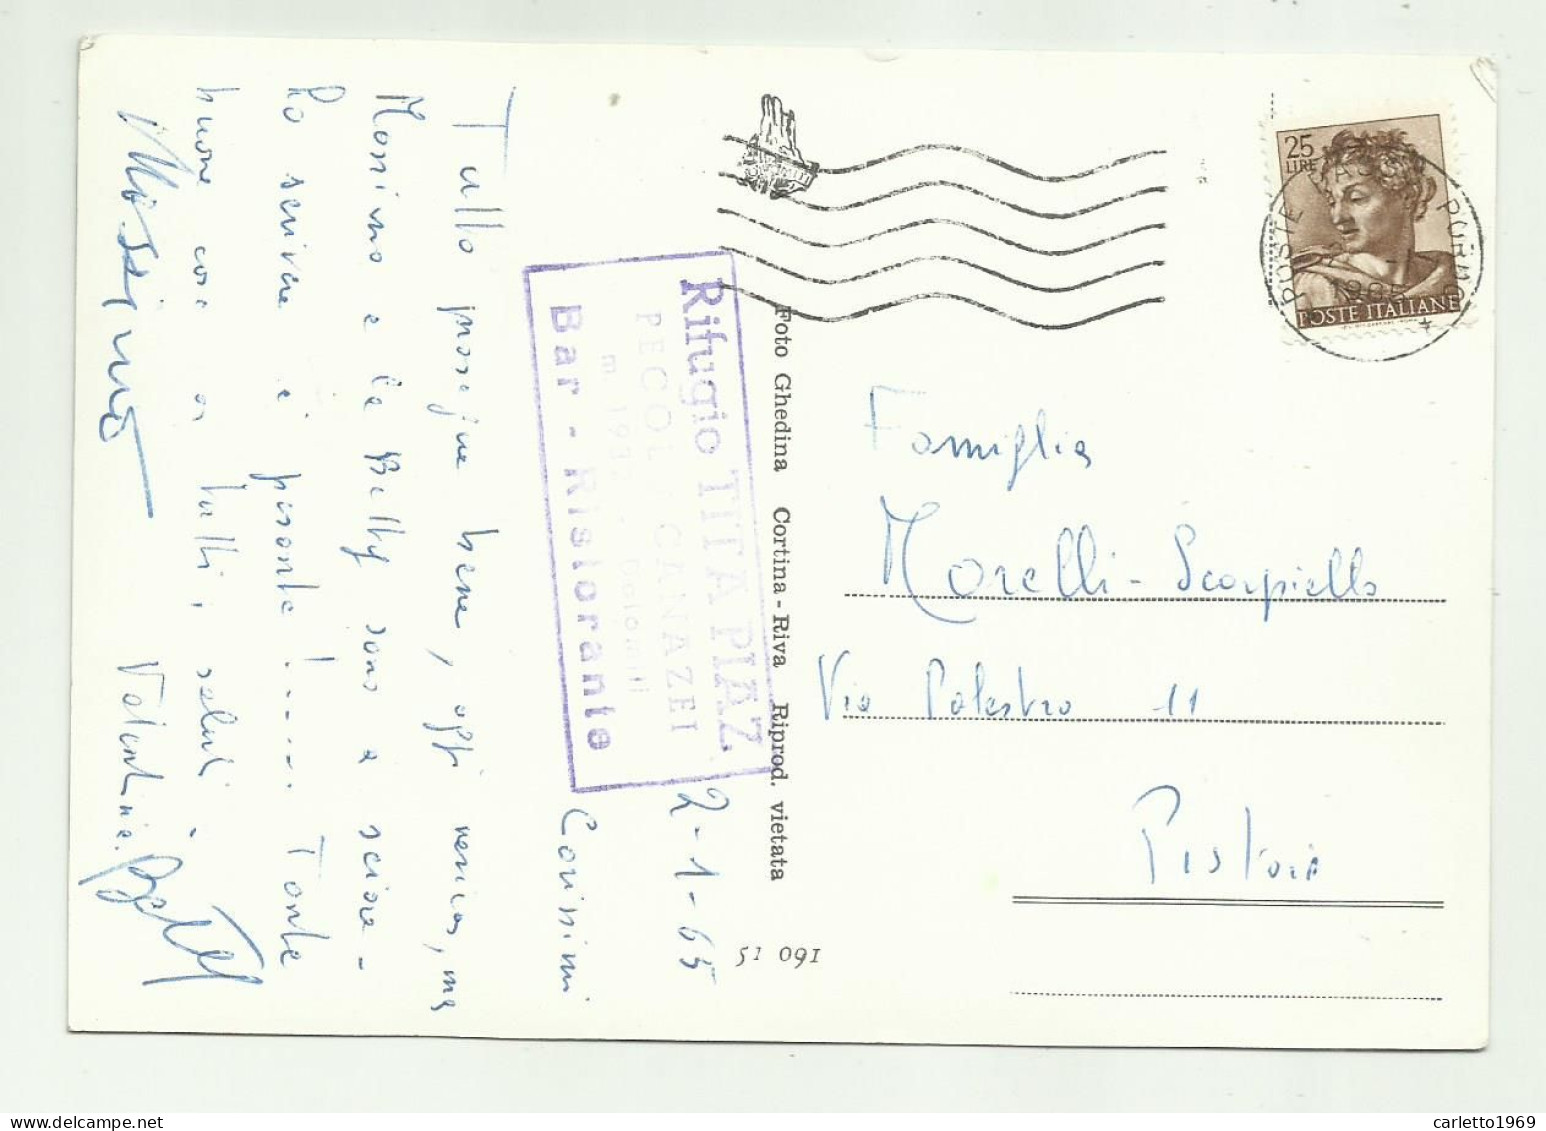 2-1-65
Carissimi
Tutto prosegue bene, oggi nevica, ma
Massimo e la Betty sono a sciare -
Lo scrivere è pesante! ..... Tante
buone cose a tutti, saluti.
Valentina. Betty
Massimo
Rifugio TITA PIAZ
PECOL CANAZEI
Dolomiti
Bar - Ristorante
Foto Ghedina Cortina - Riva Riprod. vietata
51 091
25
LIRE
POSTE ITALIANE
1965
Famiglia
Morelli - Scarpiello
Via Palestro 11
Pistoia
carletto1969